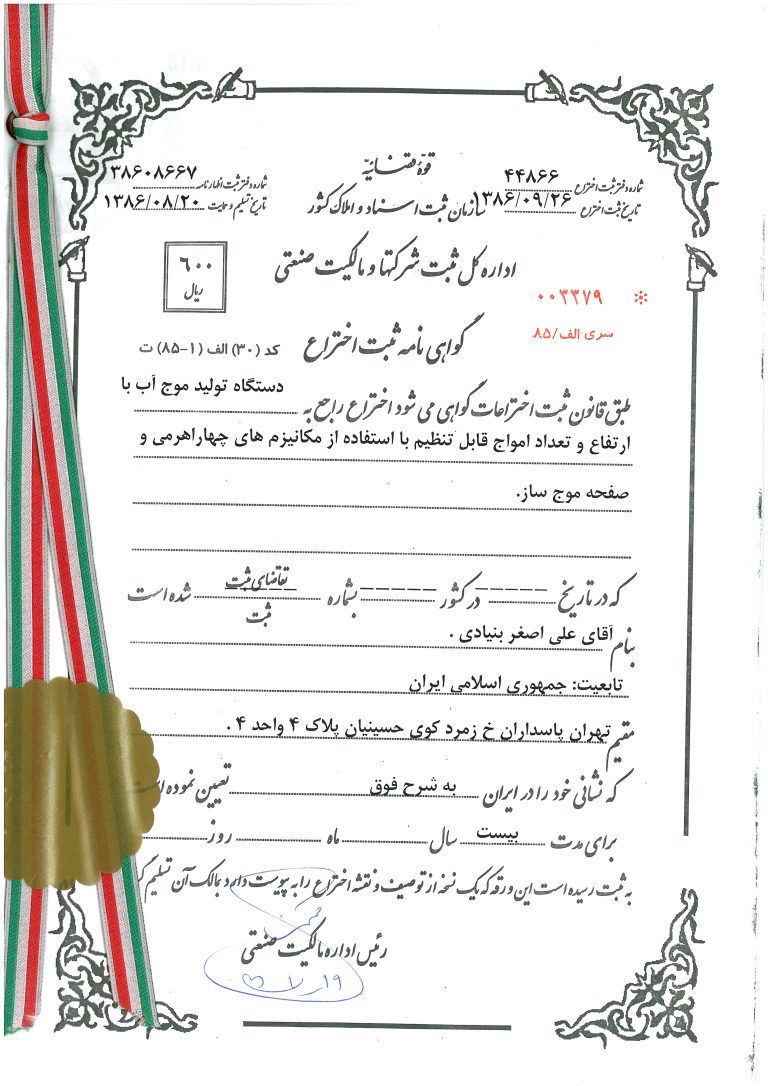 قوّهٔ قضائیّه
شماره دفتر ثبت اختراع ۴۴۸۶۶
شماره دفتر ثبت اظهارنامه ۳۸۶۰۸۶۶۷
سازمان ثبت اسناد و املاک کشور
تاریخ ثبت اختراع ۱۳۸۶/۰۹/۲۶
تاریخ تسلیم و حمایت ۱۳۸۶/۰۸/۲۰
اداره کل ثبت شرکتها و مالکیت صنعتی
۶۰۰
ریال
۰۰۳۳۷۹
سری الف/۸۵
گواهی نامه ثبت اختراع
کد (۳۰) الف (۱-۸۵) ت
طبق قانون ثبت اختراعات گواهی می شود اختراع راجع به دستگاه تولید موج آب با
ارتفاع و تعداد امواج قابل تنظیم با استفاده از مکانیزم های چهاراهرمی و
صفحه موج ساز.
که در تاریخ در کشور بشماره تقاضای ثبت شده است
ثبت
بنام آقای علی اصغر بنیادی .
تابعیت: جمهوری اسلامی ایران
مقیم تهران پاسداران خ زمرد کوی حسینیان پلاک ۴ واحد ۴ .
که نشانی خود را در ایران به شرح فوق تعیین نموده
برای مدت بیست سال ماه روز
به ثبت رسیده است این ورقه که یک نسخه از توصیف و نقشه اختراع را به پیوست دارد بمالک آن تسلیم
رئیس اداره مالکیت صنعتی